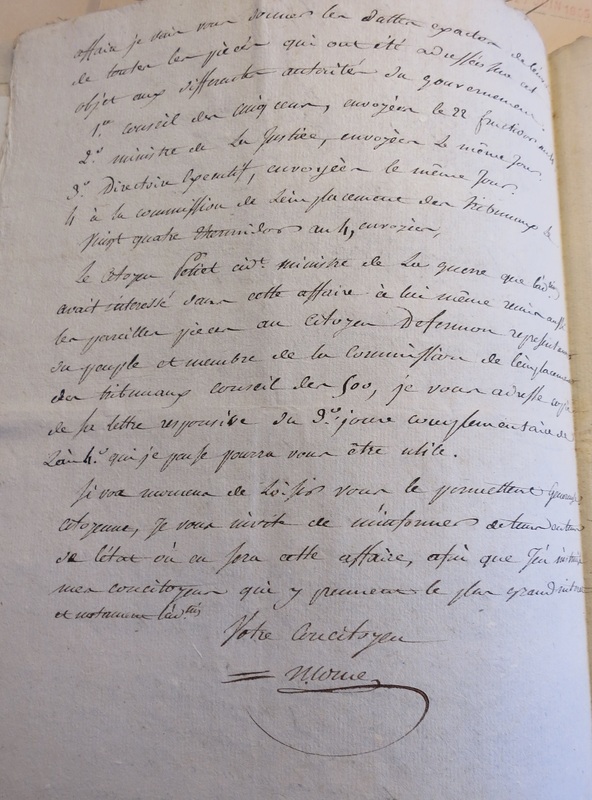 affaire je vais vous donner les dattes exactes de l'envoi
de toutes les pièces qui ont été adressées à cet
objet aux differentes autorités du gouvernement.
1.° conseil des cinq cens, envoyées le 22 fructidor an 4
2.° ministre de la Justice, envoyées le même jour.
3.° Directoire Executif, envoyées le même jour.
4 à la commission de l'emplacement des tribunaux le
vingt quatre thermidor an 4, envoyées,
Le citoyen Petiet cid.t ministre de la guerre que l'ad.tion
avait interessé dans cette affaire à lui même remis
les pareilles pieces au citoyen Defermon representant
du peuple et membre de la commission de l'emplacement
des tribunaux conseil des 500, je vous adresse copie
de sa lettre responsive du 3.e jour complementaire de
l'an 4.e qui je pense pourra vous être utile.
Si vos momens de loisirs vous le permettent
citoyenne, je vous invite de m'informer de tems en tems
de l'état où en sera cette affaire, afin que j'en instruise
mes concitoyens qui y prennent le plus grand interet
et notament l'ad.tion
Votre Concitoyen